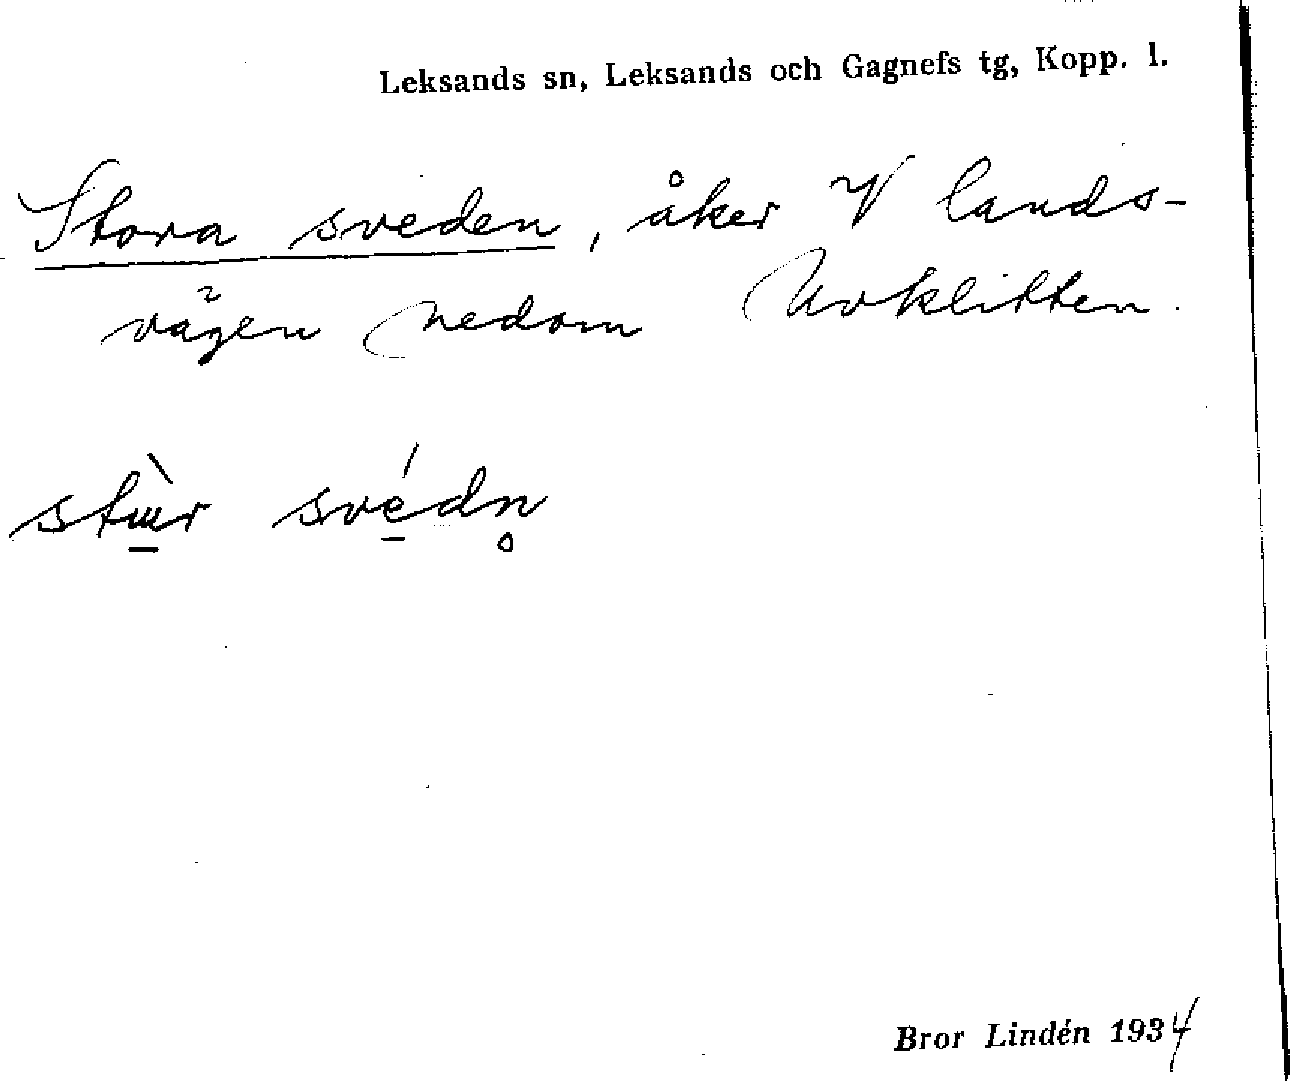 Leksands sn, Leksands och Gagnefs tg, Kopp. l.
Stora sveden, åker V lands-
vägen nedom Uvklitten.
stɯ̱̀r své̱dn̥
Bror Lindén 1934